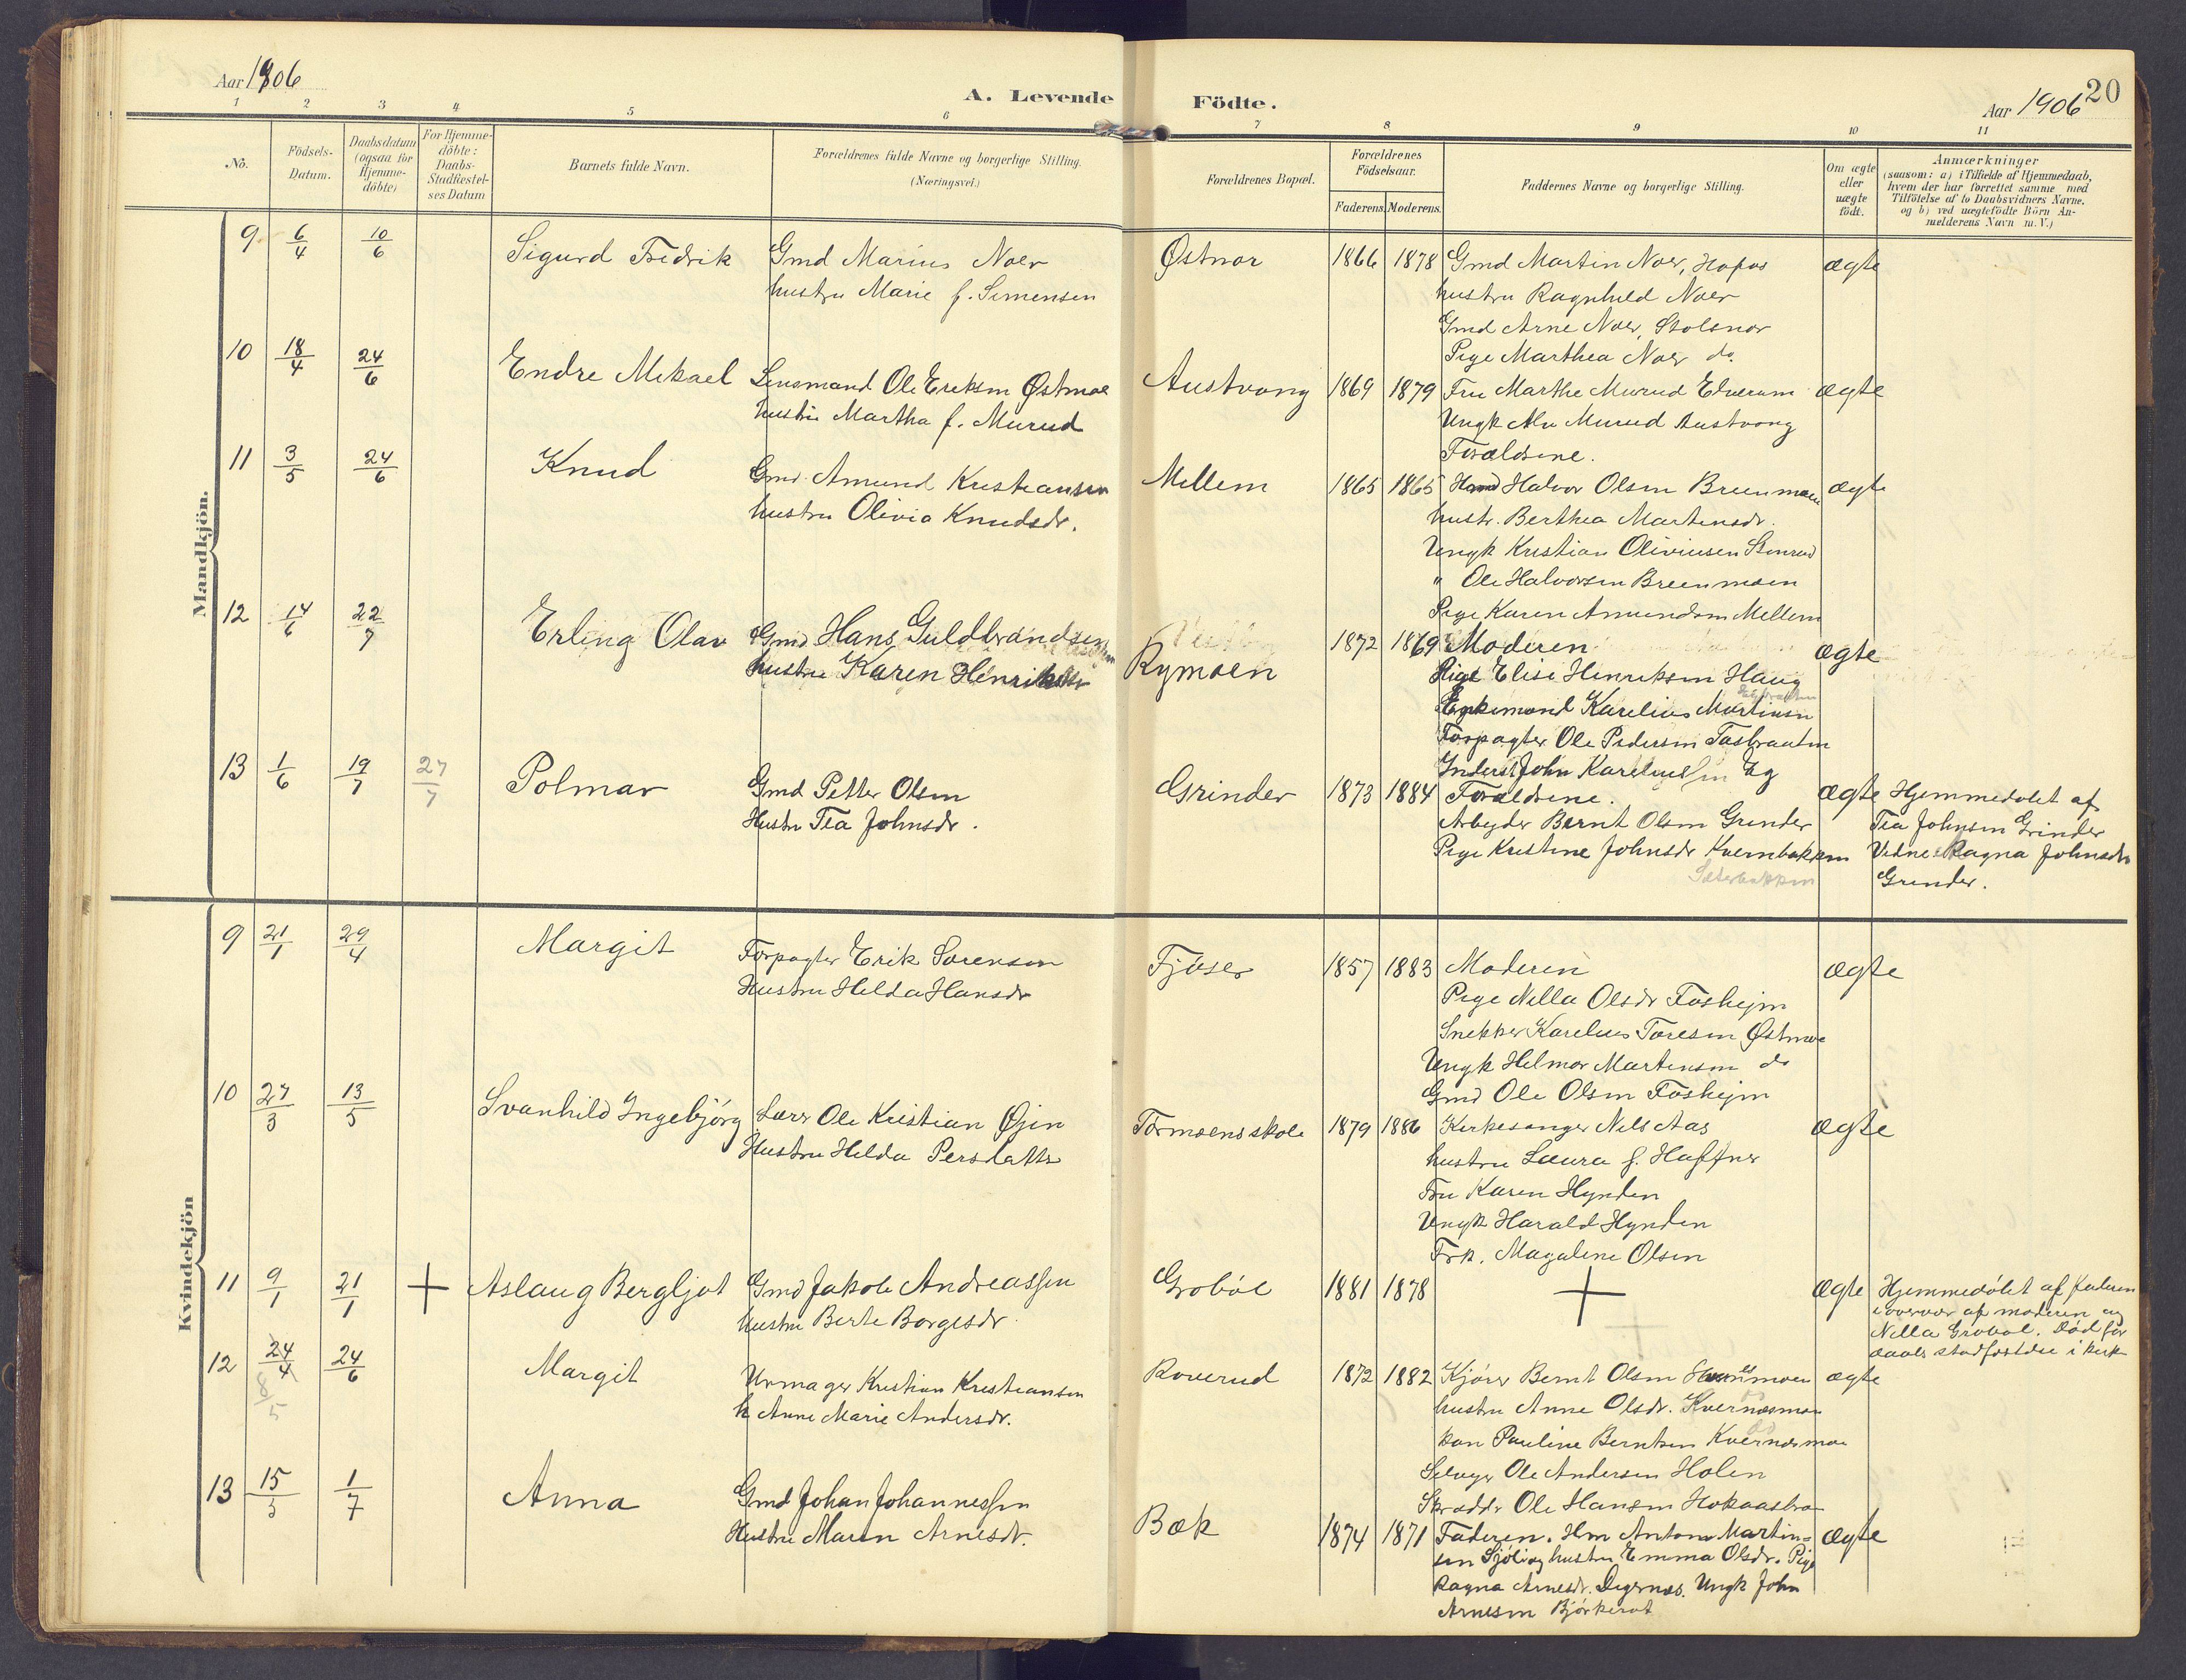 Aar 1906
A. Levende Födte.
Aar 1906
20
1 2 3 4 5 6 7 8 9 10 11
No.
Födsels-Datum.
Daabsdatum (ogsaa for Hjemme-döbte)
For Hjemme-döbte: Daabs-Stadfæstel-ses Datum
Barnets fulde Navn.
Forældrenes fulde Navne og borgerlige Stilling. (Næringsvei.)
Forældrenes Bopæl.
Forældrenes Födselsaar.
Faderens. Moderens.
Faddernes Navne og borgerlige Stilling.
Om ægte eller uægte födt.
Anmærkninger
(saasom: a) i Tilfælde af Hjemmedaab,
hvem der har forrettet samme med
Tilföielse af to Daabsvidners Navne.
og b) ved uægtefödte Börn An-
melderens Navn m. V.)
Mandkjön.
9 6/4 10/6 Sigurd Fredrik Gmd Marius Noer Østnor 1866 1878 Gmd Martin Noer, Hofos ægte
hustru Marie f. Simensen hustru Ragnhild Noer
Gmd Arne Noer, Stolsnor
Pige Marthea Noer do.
10 18/4 24/6 Endre Mikael Lensmand Ole Eriksen Østmoe Austvang 1869 1879 Fru Marthe Murud Elverum ægte
hustru Martha f. Murud Ungk Murud Austvang
Forældrene.
11 3/5 24/6 Knud Gmd. Amund Kristiansen Mellem 1865 1865 Halvor Olsen Breenmoen ægte
hustru Olivia Knudsdr. hustr. Berthea Martinsdr.
Ungk Kristian Oliviusen
" Ole Halvorsen Breenmoen
Pige Karen Amundsen Mellem
12 14/6 22/7 Erling Olav Gmd Hans Guldbrandsen Rymoen 1872 1869 Moderen ægte
hustru Karen Henriksdr Pige Elise Henriksen Haug
Enkemand Karelius Martinsen
Forpagter Ole Pedersen Tasbraaten
Inderst John Kareliussen Eg
13 1/6 19/7 27/7 Polmar Gmd Petter Olsen Grinder 1873 1884 Forældrene. ægte Hjemmedøbt af
Hustru Tea Johnsdr. Arbeyder Bernt Olsen Grinder Tea Johnsen Grinder
Pige Kristine Johnsdr Kvernbakken Vidne Ragna Johnsdr
Sæterbakken Grinder.
Kvindekjön
9 21/1 29/4 Margit Forpagter Erik Sørensen Fjøser 1857 1883 Moderen ægte
Hustru Hilda Hansdr Pige Nilla Olsdr Foskejm
Snekker Karelius Toresen Østmoe
Ungk Helmer Martinsen do
Gmd Ole Olsen Foskejm
10 27/3 13/5 Svanhild Ingebjörg Lærer Ole Kristian Øjen Tormoens skole 1879 1886 Kirkesanger Nils Aas ægte
Hustru Hilda Persdatter hustru Laura f. Haffner
Fru Karen Hynden
Ungk Harald Hynden
Frk. Magdalene Olsen
11 9/1 21/1 + Aslaug Bergljot Gmd Jakob Andreassen Grobøl 1881 1878 + ægte Hjemmedøbt af faderen
hustru Berte Borgesdr. i overvær af moderen og
Nilla Grobøl. Død før
daabs stadfæstelse i kirk
12 24/4 8/5 24/6 Margit Urmager Kristian Kristiansen Roverud 1872 1882 Kjører Bernt Olsen ægte
h Anne Marie Andersdr. hustru Anne Olsdr. Kvernæsmoe
Pauline Berntsen Kvernesmoe
Selveger Ole Andersen Holen
Skrædder Ole Hansen Hokaasbra
13 15/3 1/7 Anna Gmd Johan Johannessen Bæk 1874 1871 Faderen. Hm Anton Martin- ægte
Hustru Maren Arnesdr. sen Sjöli og hustru Emma Olsdr. Pige
Ragna Arnesdr. Digernæs. Ungk John
Arnesen Bjørkerot